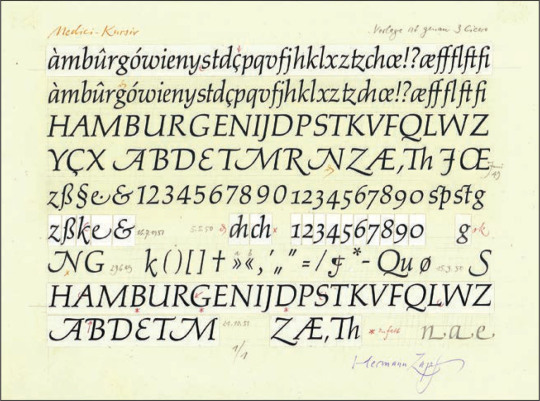 Medici-Kursiv Vorlage ist genau 3 Cicero
àmbûrgówienystdçpqvfjhklxztzchœ!?æffflftfi
àmbûrgówienystdçpqvfjhklxztzchœ!?æffflftfi
HAMBURGENIJDPSTKVFQLWZ
YÇX ABDETMRNZÆ,Th JŒ
zß§e& 1234567890 1234567890 spstg
zßke& chch 1234567890 g
NG k()[]† »«,‚„“=/ *- Quø S
HAMBURGENIJDPSTKVFQLWZ
ABDETM ZÆ,Th nae
1/1
Hermann Zapf